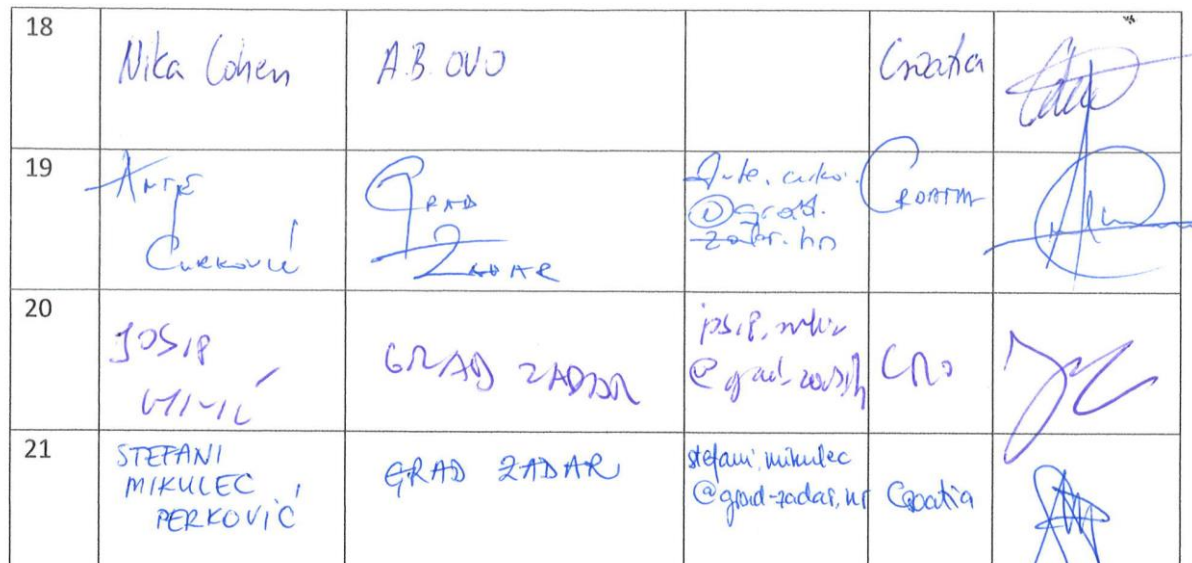 18
Nika Cohen
A.B. OVO
Croatia
19
ANTE
ĆURKOVIĆ
GRAD
ZADAR
zadar.hr
CROATIA
20
JOSIP
GRAD ZADAR
josip.
CRO
21
STEFANI
MIKULEC
PERKOVIĆ
GRAD ZADAR
stefani.mikulec
@grad-zadar.hr
Croatia